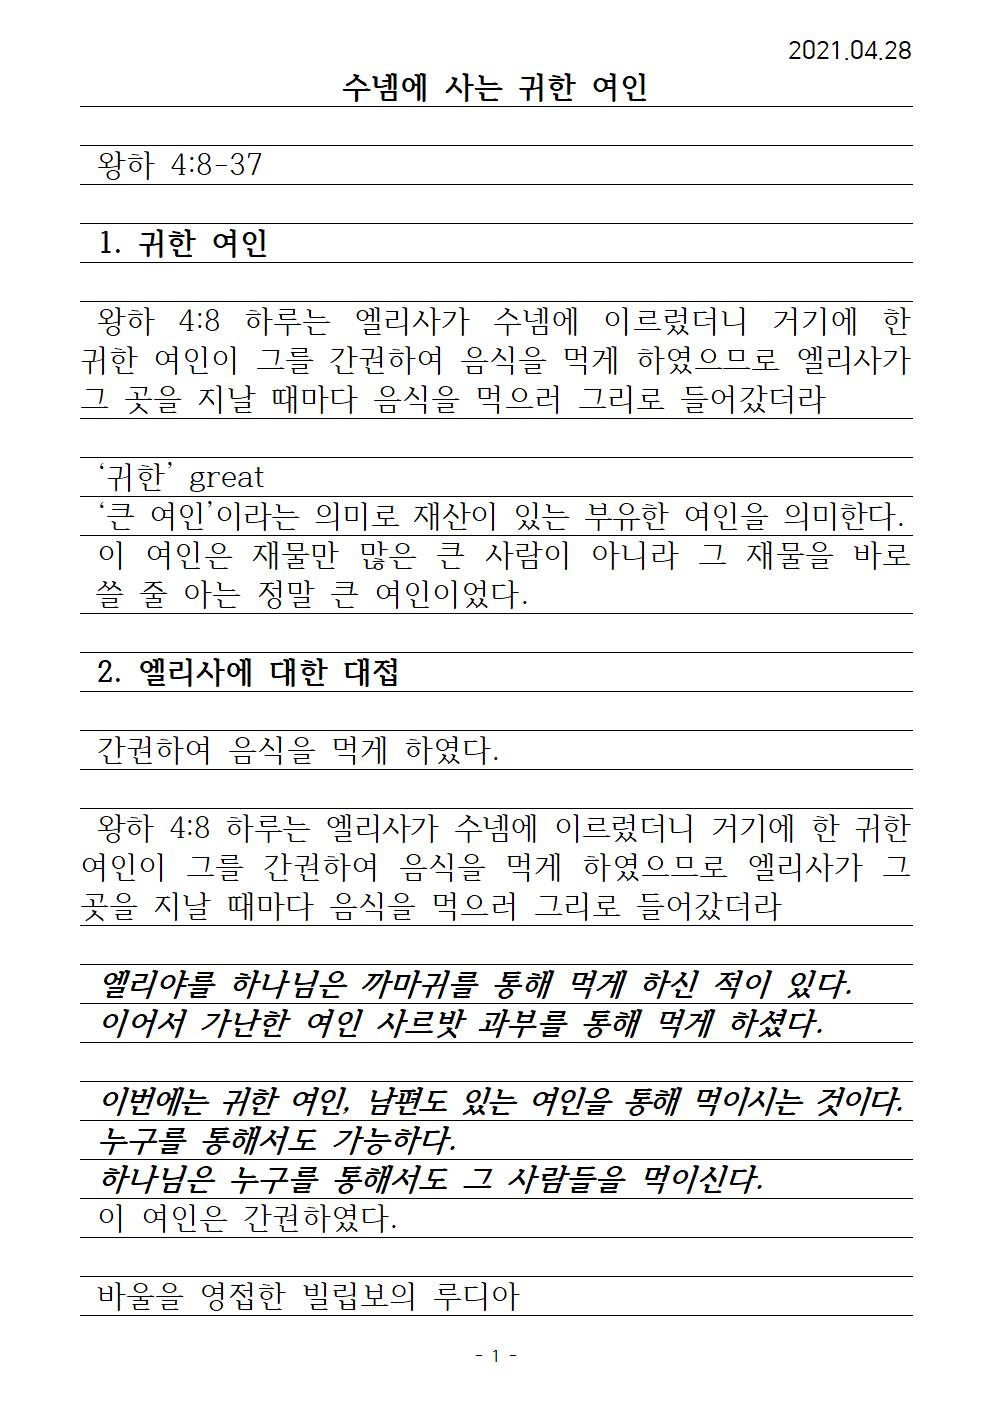 2021.04.28
수넴에 사는 귀한 여인
왕하 4:8-37
1. 귀한 여인
왕하 4:8 하루는 엘리사가 수넴에 이르렀더니 거기에 한
귀한 여인이 그를 간권하여 음식을 먹게 하였으므로 엘리사가
그 곳을 지날 때마다 음식을 먹으러 그리로 들어갔더라
‘귀한’ great
‘큰 여인’이라는 의미로 재산이 있는 부유한 여인을 의미한다.
이 여인은 재물만 많은 큰 사람이 아니라 그 재물을 바로
쓸 줄 아는 정말 큰 여인이었다.
2. 엘리사에 대한 대접
간권하여 음식을 먹게 하였다.
왕하 4:8 하루는 엘리사가 수넴에 이르렀더니 거기에 한 귀한
여인이 그를 간권하여 음식을 먹게 하였으므로 엘리사가 그
곳을 지날 때마다 음식을 먹으러 그리로 들어갔더라
엘리야를 하나님은 까마귀를 통해 먹게 하신 적이 있다.
이어서 가난한 여인 사르밧 과부를 통해 먹게 하셨다.
이번에는 귀한 여인, 남편도 있는 여인을 통해 먹이시는 것이다.
누구를 통해서도 가능하다.
하나님은 누구를 통해서도 그 사람들을 먹이신다.
이 여인은 간권하였다.
바울을 영접한 빌립보의 루디아
- 1 -